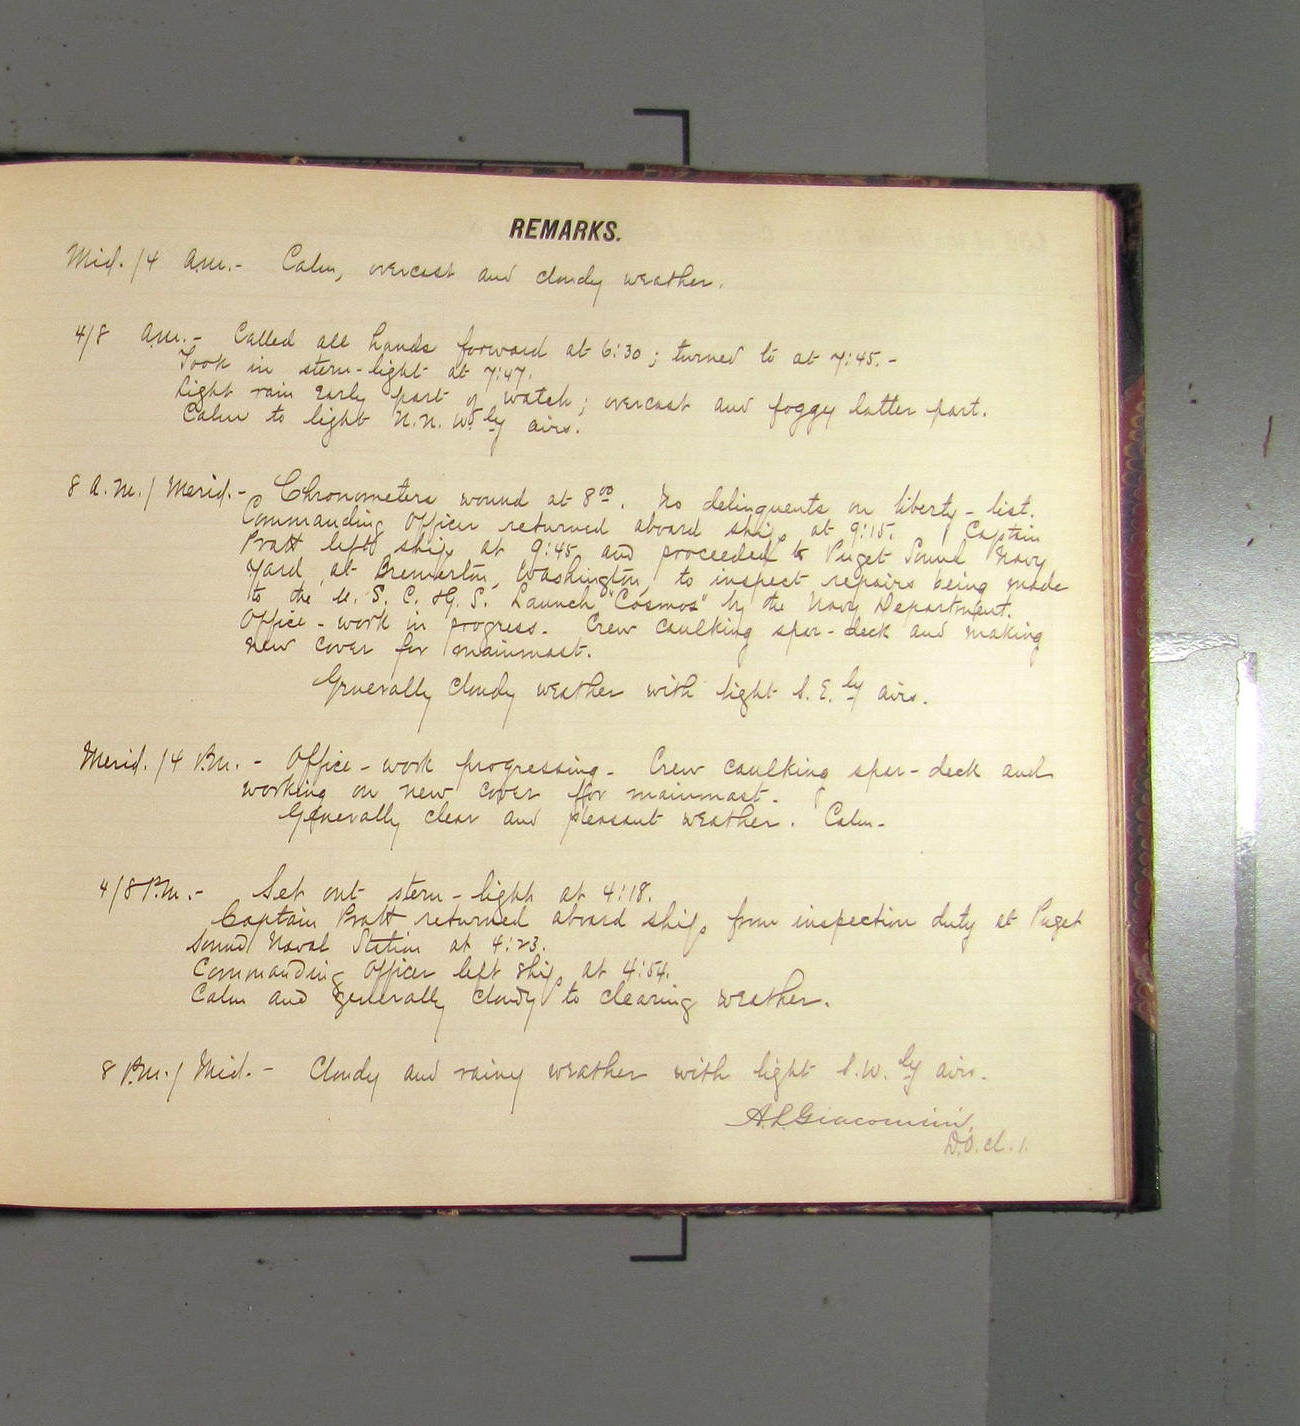 REMARKS.
Mid./4 A.M.- Calm, overcast and cloudy weather.
4/8 A.M.- Called all hands forward at 6:30; turned to at 7:45.-
Took in stern-light at 7:47.
Light rain early part of watch; overcast and foggy latter part.
Calm to light N.N.W'ly airs.
8 A.M./Merid.- Chronometers wound at 8 00. No delinquents on liberty-list.
Commanding Officer returned aboard ship at 9:15. Captain
Pratt left ship at 9:45 and proceeded to Puget Sound Navy
Yard, at Bremerton, Washington, to inspect repairs being made
to the U.S.C.&G.S. Launch "Cosmos" by the Navy Department.
Office-work in progress. Crew caulking spar-deck and making
new cover for mainmast.
Generally cloudy weather with light S.E.ly airs.
Merid./4 P.M.- Office-work progressing- Crew caulking spar-deck and
working on new cover for mainmast.
Generally clear and pleasant weather. Calm-
4/8 P.M.- Set out stern-light at 4:18.
Captain Pratt returned aboard ship from inspection duty at Puget
Sound Naval Station at 4:23.
Commanding Officer left ship at 4:54.
Calm and generally cloudy to clearing weather.
8 P.M./Mid.- Cloudy and rainy weather with light S.W.ly airs.
A.L. Giacomini,
D.O. cl. 1.